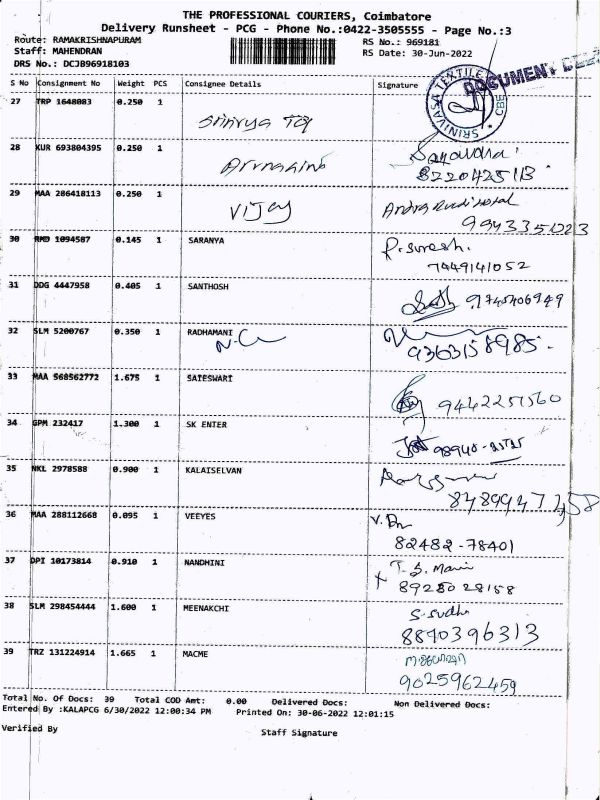 THE PROFESSIONAL COURIERS, Coimbatore
Delivery Runsheet - PCG - Phone No.:0422-3505555 - Page No.:3
Route: RAMAKRISHNAPURAM RS No.: 969181
Staff: MAHENDRAN RS Date: 30-Jun-2022
DRS No.: DCJB96918103
DOCUMENT
SRINIVASA TEXTILE CBE
S No Consignment No Weight PCS Consignee Details Signature
27 TRP 1648083 0.250 1
28 KUR 693804395 0.250 1
8220425113
29 MAA 286418113 0.250 1 Vijay
9943351223
30 RMD 1094587 0.145 1 SARANYA P. Suresh.
7449141052
31 DDG 4447958 0.405 1 SANTHOSH 9745706949
32 SLM 5200767 0.350 1 RADHAMANI
9363158985.
33 MAA 568562772 1.675 1 SATESWARI
9442257560
34 GPM 232417 1.300 1 SK ENTER
35 NKL 2978588 0.900 1 KALAISELVAN
8489947458
36 MAA 288112668 0.095 1 VEEYES
82482-78401
37 DPI 10173814 0.910 1 NANDHINI T. S. Mani
8928028158
38 SLM 298454444 1.600 1 MEENAKCHI S. Sudha
8870396313
39 TRZ 131224914 1.665 1 MACME
9025962459
Total No. Of Docs: 39 Total COD Amt: 0.00 Delivered Docs: Non Delivered Docs:
Entered By :KALAPCG 6/30/2022 12:00:34 PM Printed On: 30-06-2022 12:01:15
Verified By Staff Signature